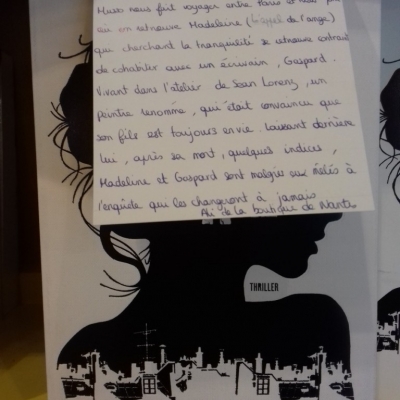 Musso nous fait voyager entre Paris et
où on retrouve Madeleine (l'appel de l'ange)
qui cherchant la tranquilité se retrouve contraint
de cohabiter avec un écrivain, Gaspard.
Vivant dans l'atelier de Sean Lorenz, un
peintre renommé, qui était convaincu que
son fils est toujours en vie. Laissant derrière
lui, après sa mort, quelques indices,
Madeleine et Gaspard sont malgré eux mêlés à
l'enquête qui les changeront à jamais
de la boutique de Nantes
THRILLER